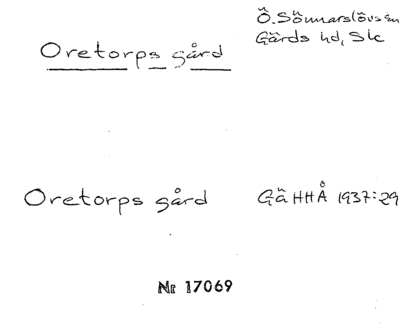 Oretorps gård
Ö. Sönnarslövs sn
Gärds hd, Sk
Oretorps gård
GäHHÅ 1937:29
Nr 17069